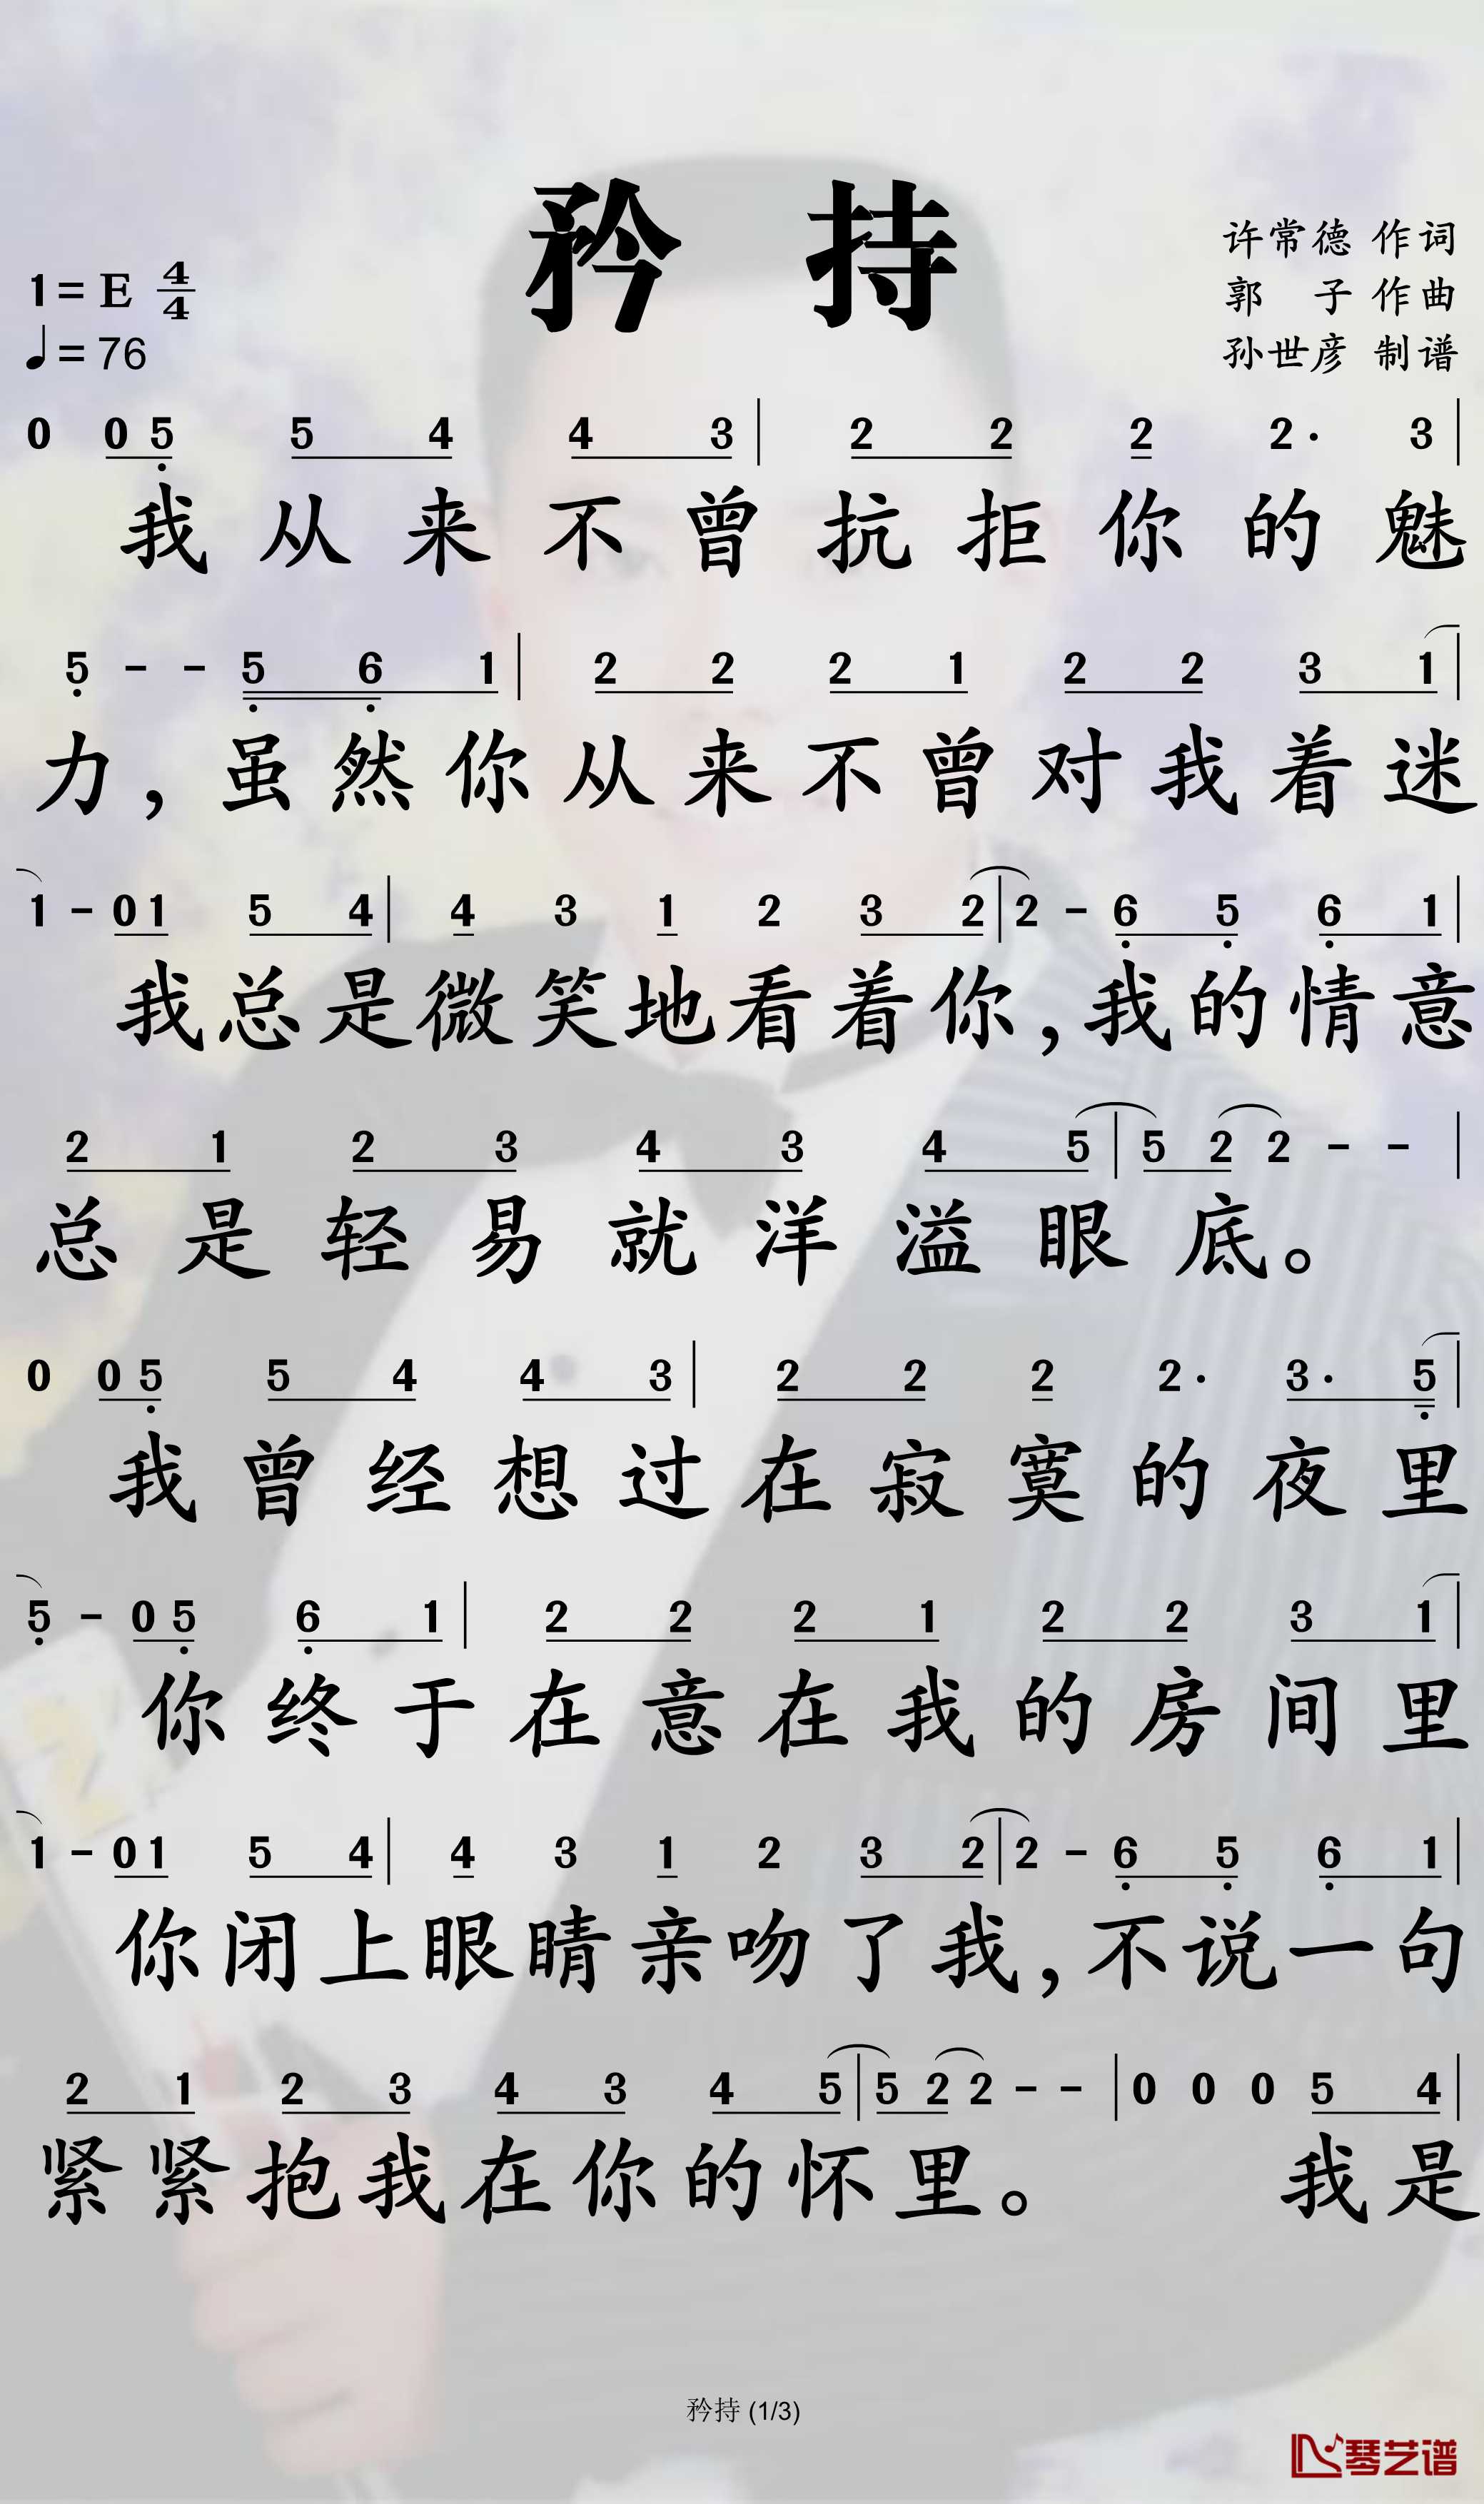 矜 持
许常德 作词
郭 子 作曲
孙世彦 制谱
1= E 4/4
♩= 76
0 0 5 5 4 4 3 | 2 2 2 2· 3 |
我从来不曾抗拒你的魅
5 - - 5 6 1 | 2 2 2 1 2 2 3 1 |
力，虽然你从来不曾对我着迷
1 - 0 1 5 4 | 4 3 1 2 3 2 | 2 - 6 5 6 1 |
我总是微笑地看着你，我的情意
2 1 2 3 4 3 4 5 | 5 2 2 - - |
总是轻易就洋溢眼底。
0 0 5 5 4 4 3 | 2 2 2 2· 3· 5 |
我曾经想过在寂寞的夜里
5 - 0 5 6 1 | 2 2 2 1 2 2 3 1 |
你终于在意在我的房间里
1 - 0 1 5 4 | 4 3 1 2 3 2 | 2 - 6 5 6 1 |
你闭上眼睛亲吻了我，不说一句
2 1 2 3 4 3 4 5 | 5 2 2 - - | 0 0 0 5 4 |
紧紧抱我在你的怀里。 我是
矜持 (1/3)
琴艺谱